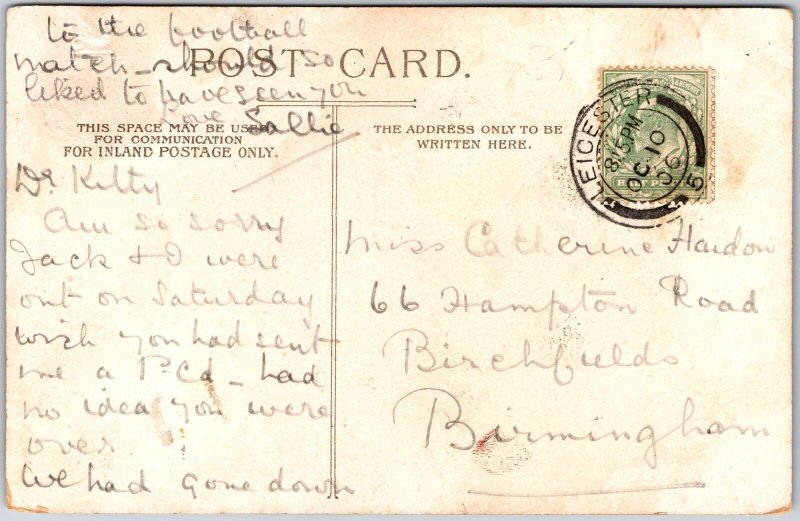 to the football
match_ should so
liked to have seen you
love Sallie
POST CARD.
THIS SPACE MAY BE USED
FOR COMMUNICATION
FOR INLAND POSTAGE ONLY.
THE ADDRESS ONLY TO BE
WRITTEN HERE.
LEICESTER
8.15 PM
OC 10
06
5
Dr Kitty
Am so sorry
Jack & I were
out on Saturday
wish you had sent
me a P.Cd _ had
no idea you were
over
We had gone down
Miss Catherine
66 Hampton Road
Birchfields
Birmingham